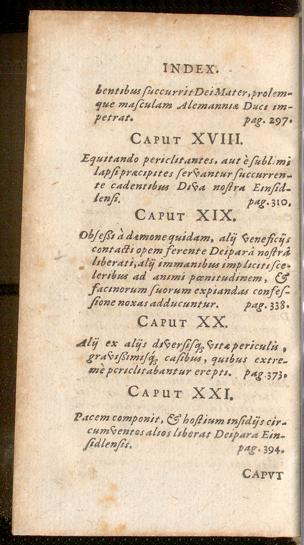 INDEX.
bentibus succurrit Dei Mater, prolem-
que masculam Alemanniæ Duci im-
petrat. pag. 297.
CAPUT XVIII.
Equitando periclitantes, aut è subl.mi
lapsi præcipites servantur succurren-
te cadentibus Diva nostra Einsid-
lensi. pag. 310.
CAPUT XIX.
Obsessi à dæmone quidam, alij veneficijs
contacti opem ferente Deipara nostrâ
liberati, alij immanibus impliciti sce-
leribus ad animi pœnitudinem, &
facinorum suorum expiandas confes-
sione noxas adducuntur. pag. 338.
CAPUT XX.
Alij ex alijs diversisq; vitæ periculis,
gravissimisq; casibus, quibus extre-
mè periclitabantur erepti. pag. 373.
CAPUT XXI.
Pacem componit, & hostium insidijs cir-
cumventos alios liberat Deipara Ein-
sidlensis. pag. 394.
CAPVT